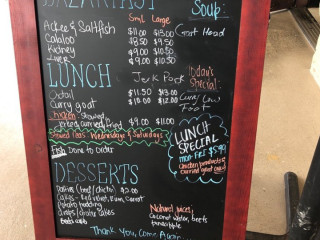 BREAKFAST
Sml Large
Soup
Ackee & Saltfish $11.00 $13.00
Goat Head
Calaloo $8.50 $9.50
Kidney $9.00 $10.50
Liver $9.00 $10.50
LUNCH
Jerk Pork
Today's
Special:
Oxtail $11.50 $13.00
Curry goat $10.00 $12.00
Cow
Foot
Chicken - stewed,
curried, fried $9.00 $11.00
Wednesday & Saturdays
Fish Done to Order
LUNCH
SPECIAL
mon-Fri $5.99
chicken products &
curried goat
DESSERTS
Patties (beef/chicken) $2.00
Cakes - Red velvet, Rum, Carrot
Potato pudding
Natural juices:
Coconut water, beets
pineapple
Thank You, Come Again